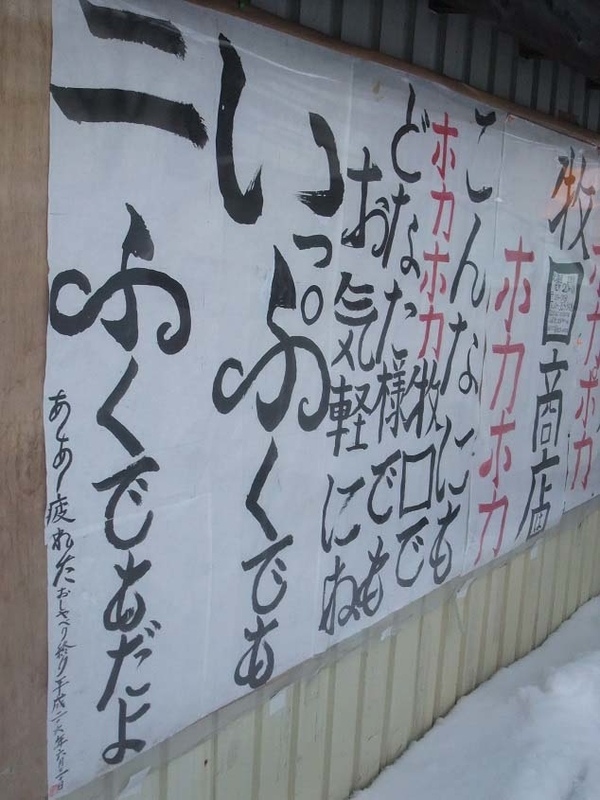 ホカホカ
牧口商店
ホカホカ
こんなにも
ホカホカ牧口で
どなた様でも
お気軽にね
いっぷくでも
二ふくでもだよ
あ〜あ〜疲れたおしゃべり終り平成二六年六月